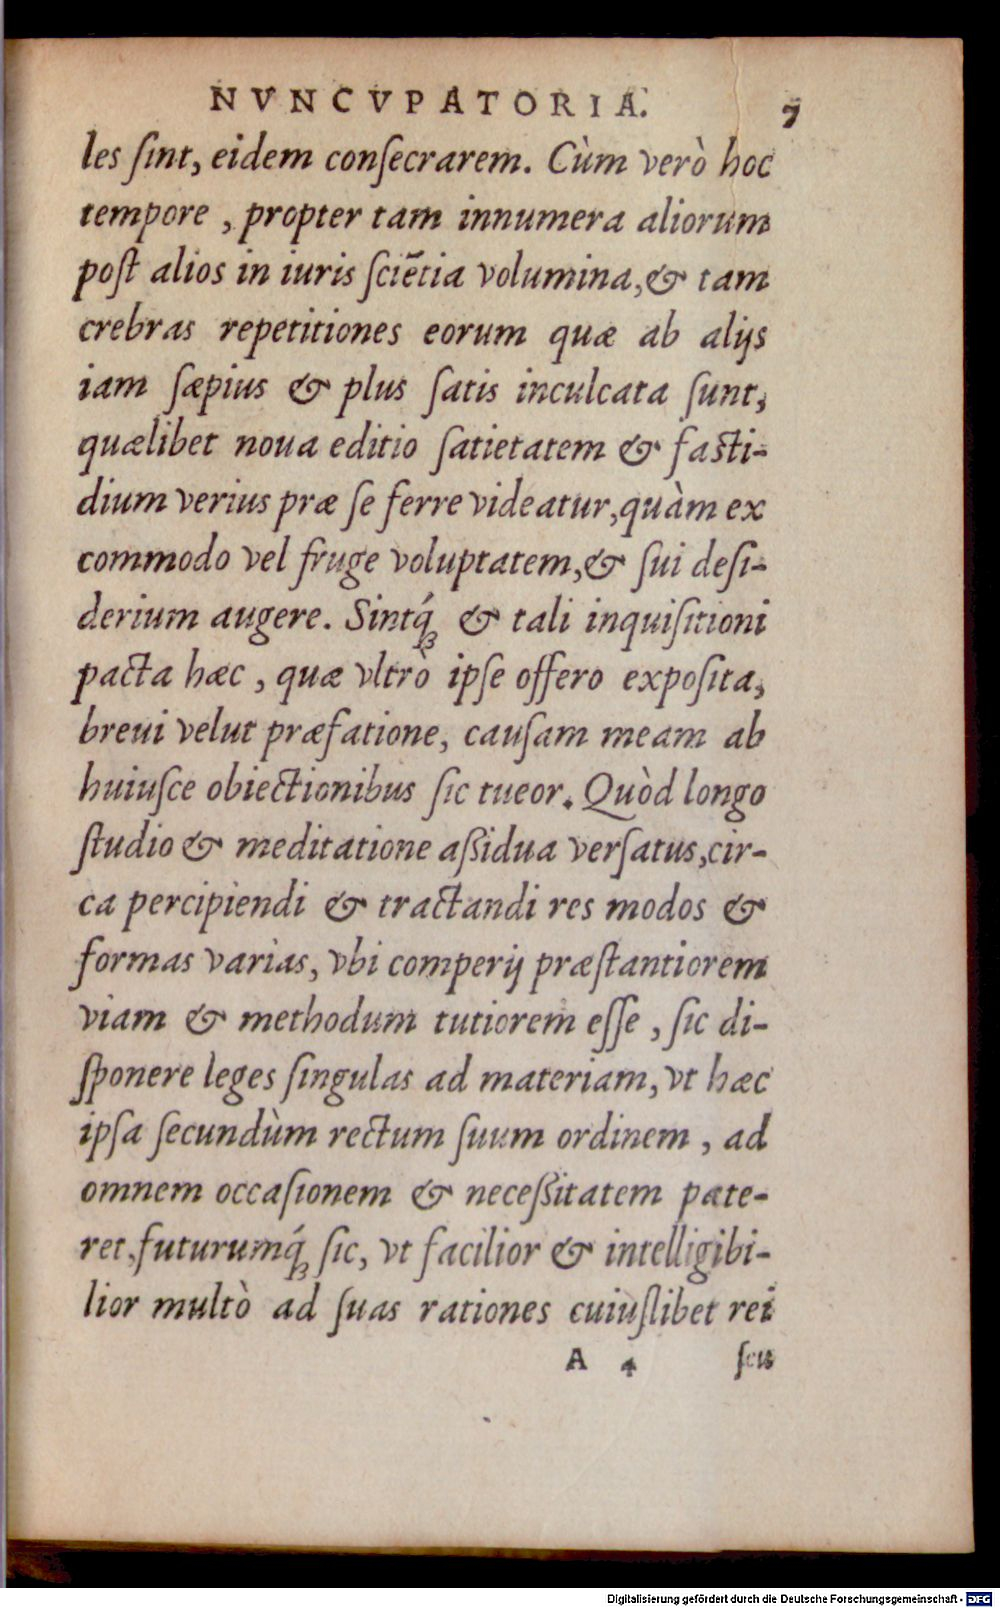 NVNCVPATORIA. 7
les ſint, eidem conſecrarem. Cùm verò hoc
tempore, propter tam innumera aliorum
poſt alios in iuris ſciẽtia volumina, & tam
crebras repetitiones eorum quæ ab alijs
iam ſæpius & plus ſatis inculcata ſunt,
quælibet noua editio ſatietatem & faſti-
dium verius præ ſe ferre videatur, quàm ex
commodo vel fruge voluptatem, & ſui deſi-
derium augere. Sintq́ꝫ & tali inquiſitioni
pacta hæc, quæ vltrò ipſe offero expoſita,
breui velut præfatione, cauſam meam ab
huiuſce obiectionibus ſic tueor. Quòd longo
ſtudio & meditatione aßidua verſatus, cir-
ca percipiendi & tractandi res modos &
formas varias, vbi comperij præſtantiorem
viam & methodum tutiorem eſſe, ſic di-
ſponere leges ſingulas ad materiam, vt hæc
ipſa ſecundùm rectum ſuum ordinem, ad
omnem occaſionem & neceßitatem pate-
ret, futurumq́ꝫ ſic, vt facilior & intelligibi-
lior multò ad ſuas rationes cuiuſlibet rei
A 4 ſeu
Digitalisierung gefördert durch die Deutsche Forschungsgemeinschaft - DFG